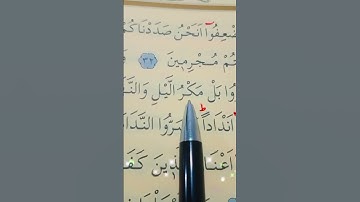 ضْعِفُٓوا اَنَحْنُ صَدَدْنَاكُمْ
مُجْرِمٖينَ ٣٢
وا بَلْ مَكْرُ الَّيْلِ وَالنَّ
اَنْدَاداً ط سَرُّوا النَّدَا
اَعْنَا ذٖينَ كَفَ